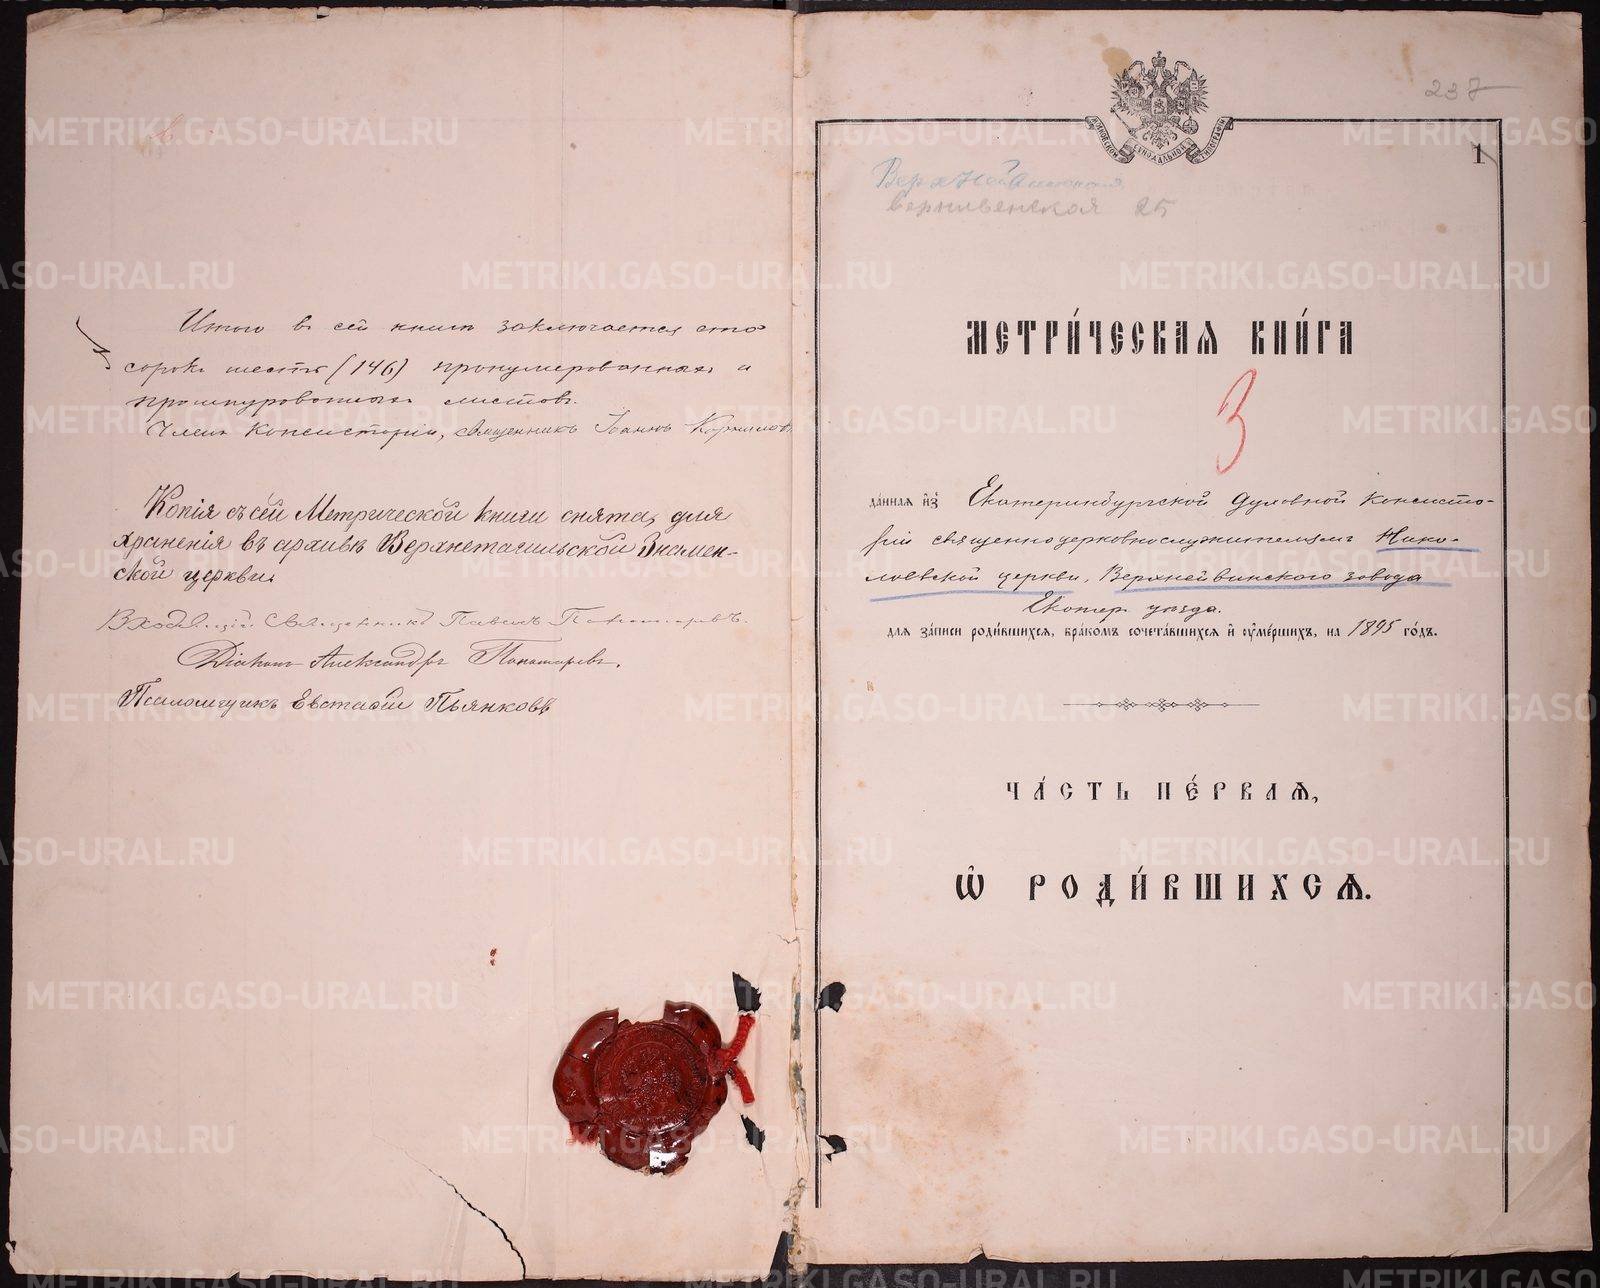 Итого въ сей книгѣ заключается сто
сорокъ шесть (146) пронумерованныхъ и
прошнурованныхъ листовъ.
Членъ Консисторіи, Священникъ Іоаннъ
Копія съ сей Метрической книги снята, для
храненія въ архивѣ Верхнетагильской Знамен-
ской церкви.
Священникъ Павелъ Пономаревъ.
Діаконъ Александръ Пономаревъ.
Псаломщикъ Евстафій Пьянковъ
237
СѴНОДАЛЬНОЙ ТИПОГРАФІИ
1
25
МЕТРИ́ЧЕСКАЯ КНИ́ГА
3
да́нная и҆з̾ Екатеринбургской Духовной Консисто-
ріи священноцерковнослужителямъ Нико-
лаевской церкви, Верхнейвинскаго завода
Екатер. уѣзда.
для за́писи роди́вшихся, бра́комъ сочета́вшихся и҆ ᲂу҆ме́ршихъ, на 1895 го́дъ.
ЧА́СТЬ ПЕ́РВАЯ,
Ѽ РОДИ́ВШИХСЯ.
METRIKI.GASO-URAL.RU